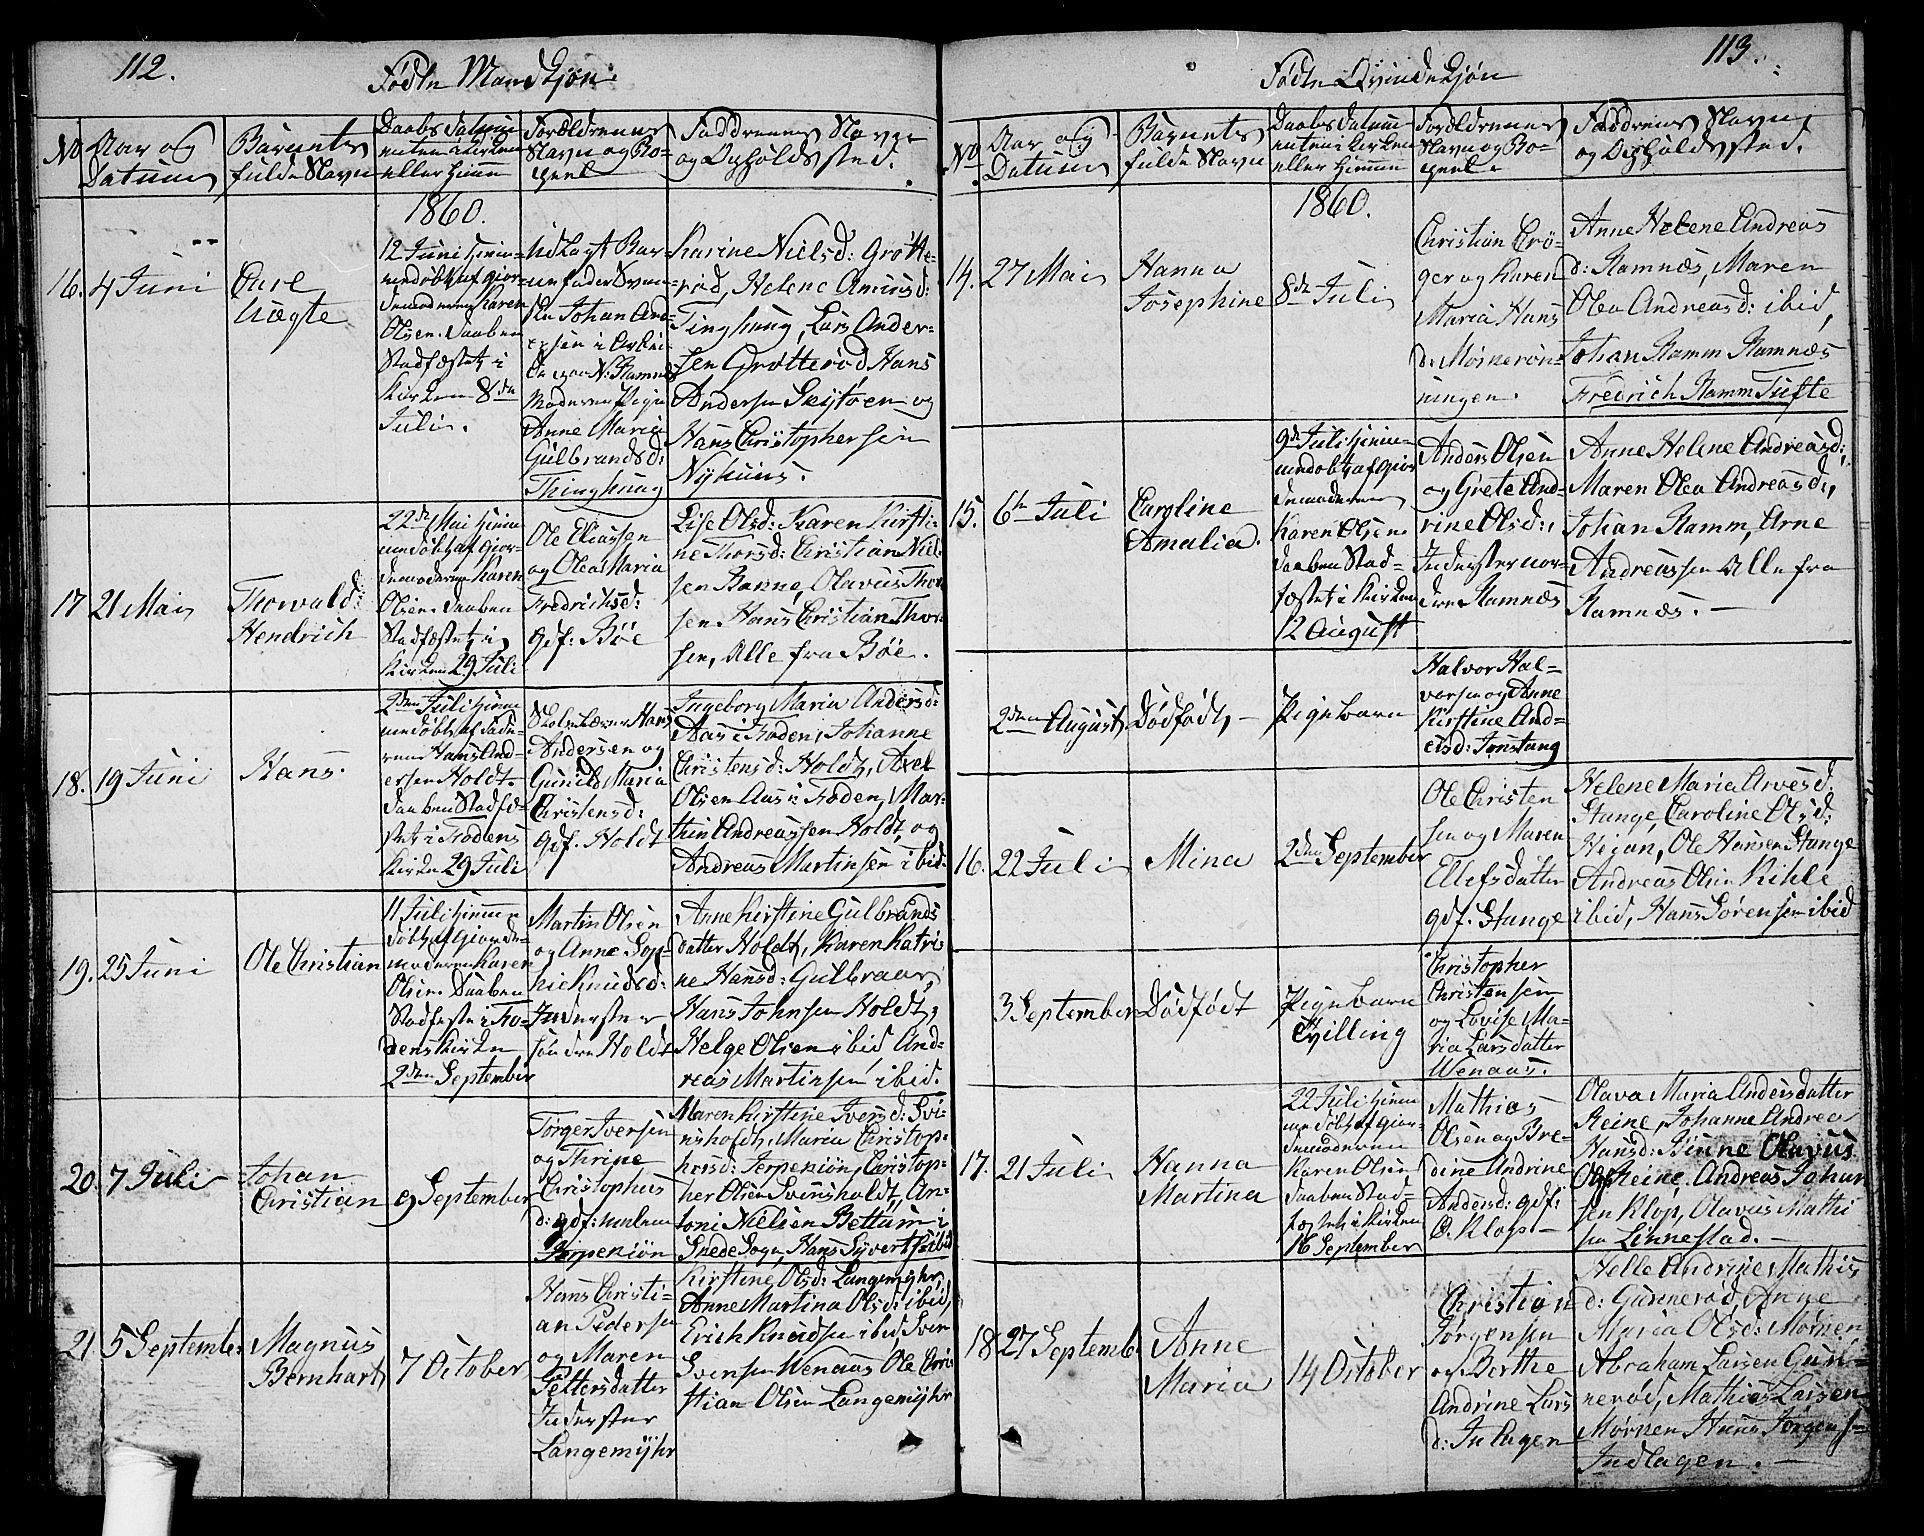 112.
Fødte Mandkjøn.
No
Aar og
Datum
Barnets
fulde Navn
Daabs Datum
enten i Kirken
eller Hjemme
Forældrenes
Navn og Bo-
pæl
Faddrenes Navn
og Opholdssted.
1860.
16.
4 Juni
Carl
12 Juni hjem-
medøbt af Gjor-
demoderen Karen
Olsen. Daaben
Stadfæstet i
Kirken 8de
Juli.
Udlagt Bar-
nefader
Johan And-
ersen i
Moderen Pige
Anne Maria
Gulbrandsd:
Thinghaug
Karine Nielsd: Grøtte-
rød, Helene
Tinghaug, Lars Ander-
sen Grøtterød Hans
Andersen Skytøen og
Hans Christophersen
Nyhuus.
17
21 Mai
Thorvald
Hendrich
22de Mai hjem-
medøbt af Gjor-
demoderen Karen
Olsen. Daaben
Stadfæstet i
Kirken 29 Juli
Ole Eliassen
og Olea Maria
Fredriksd:
gdf: Böe
Lise Olsd: Karen Kirsti-
ne Thorsd: Christian Niel-
sen Olavus Thor-
sen Hans Christian Thor-
sen, Alle fra Böe.
18.
19 Juni
Hans.
2den Juli hjem-
medøbt af Fade-
ren Hans And-
ersen Holdt.
Daaben Stadfæ-
stet i Fodens
Kirke 29 Juli
Skolelærer Hans
Andersen og
Gunild Maria
Christensd:
gdf. Holdt
Ingeborg Maria Andersd:
Aas i Foden, Johanne
Christensd: Holdt, Axel
Olsen Aas i Foden, Mar-
thin Andreassen Holdt, og
Andreas Martinsen ibid.
19.
25 Juni
Ole Christian
11 Juli hjemme-
døbt af Gjorde-
moderen Karen
Olsen. Daaben
Stadfæstet i Fo-
dens Kirke
2den September
Martin Olsen
og Anne Sop-
hie Knudsd:
Inderster
søndre Holdt
Anne Kirstine Gulbrands
datter Holdt, Karen Katri-
ne Hansd: Gulbraar,
Hans Johnsen Holdt,
Helge Olsen ibid And-
reas Martinsen ibid.
20.
7 Juli
Johan
Christian
9 September
Törger Iversen
og Thrine
Christophers
d: gdf:
Jerpeniön
Maren Kirstine Iversd: Svi-
nsholdt, Maria Christop-
hersd: Jerpeniön, Christop-
her Olsen Svinsholdt, An-
toni Nielsen Bettum i
Snede Sogn, Hans Syvertsen ibid
21.
5 September
Magnus
Bernhart
7 October
Hans Christi-
an Pedersen
og Maren
Pettersdatter
Inderster
Langemyhr
Kirstine Olsd: Langemyhr
Anne Martina Olsd: ibid,
Erich Knudsen ibid Sven
Svensen Wenaas Ole Chris-
tian Olsen Langemyhr
113.
Fødte Qvindekjøn
No
Aar og
Datum
Barnets
fulde Navn
Daabs Datum
enten i Kirken
eller Hjemme
Forældrenes
Navn og Bo-
pæl.
Faddrenes Navn,
og Opholdssted.
1860.
14.
27 Mai
Hanna
Josephine
8de Juli
Christian Crö-
ger og Karen
Maria Hans
d:
ningen.
Anne Helene Andreas
d: Ramnæs, Maren
Olea Andreasd: ibid,
Johan Ramm Ramnæs
Fredrich Ramm Tufte
15.
6te Juli
Caroline
Amalia.
9de Juli hjem-
medøbt af Gjor-
demoderen
Karen Olsen.
Daaben Stad-
fæstet i Kirken
12 August
Anders Olsen
og Grete And-
rine Olsd:,
Inderster nor-
dre Ramnæs
Anne Helene Andreasd:,
Maren Olea Andreasd:,
Johan Ramm, Arne
Andreassen Alle fra
Ramnæs. —
2den August
Dødfødt, —
Pigebarn
Halvor Hal-
vorsen og Anne
Kirstine And-
ersd: Jonstang
16.
22 Juli
Mina
2den September
Ole Christen
sen og Maren
Ellefsdatter
gdf. Stange
Helene Maria Arvesd:
Stange, Caroline Olsd:
Higan, Ole Hansen Stange
Andreas Olsen Kihle
ibid, Hans Sörensen ibid
3 September
Dødfødt
Pigebarn
Tvilling
Christopher
Christensen
og Lovise Ma-
ria Larsdatter
Wenaas.
17.
21 Juli
Hanna
Martina
22 Juli hjem
medøbt af Gjor-
demoderen
Karen Olsen
Daaben Stad-
fæstet i Kirken
16 September
Mathias
Olsen og Bre-
dine Andrine
Andersd: gdf:
Ø. Klop —
Olava Maria Andersdatter
Reine, Johanne Andrea
Hansd: Binne Olavus
Reine. Andreas Johan
sen Klop, Olavus Mathi
sen Linnestad. —
18
27 Septemb
Anne
Maria
14 October
Christian
Jørgensen
og Berthe
Andrine Lars
d: Inlagen
Helle Andrine Mathis
d: Gunnerød, Anne
Maria Olsd: Mørken
Abraham Larsen Gun-
nerød, Mathias Larsen
Mørken Hans Jørgens-
Indlagen. —